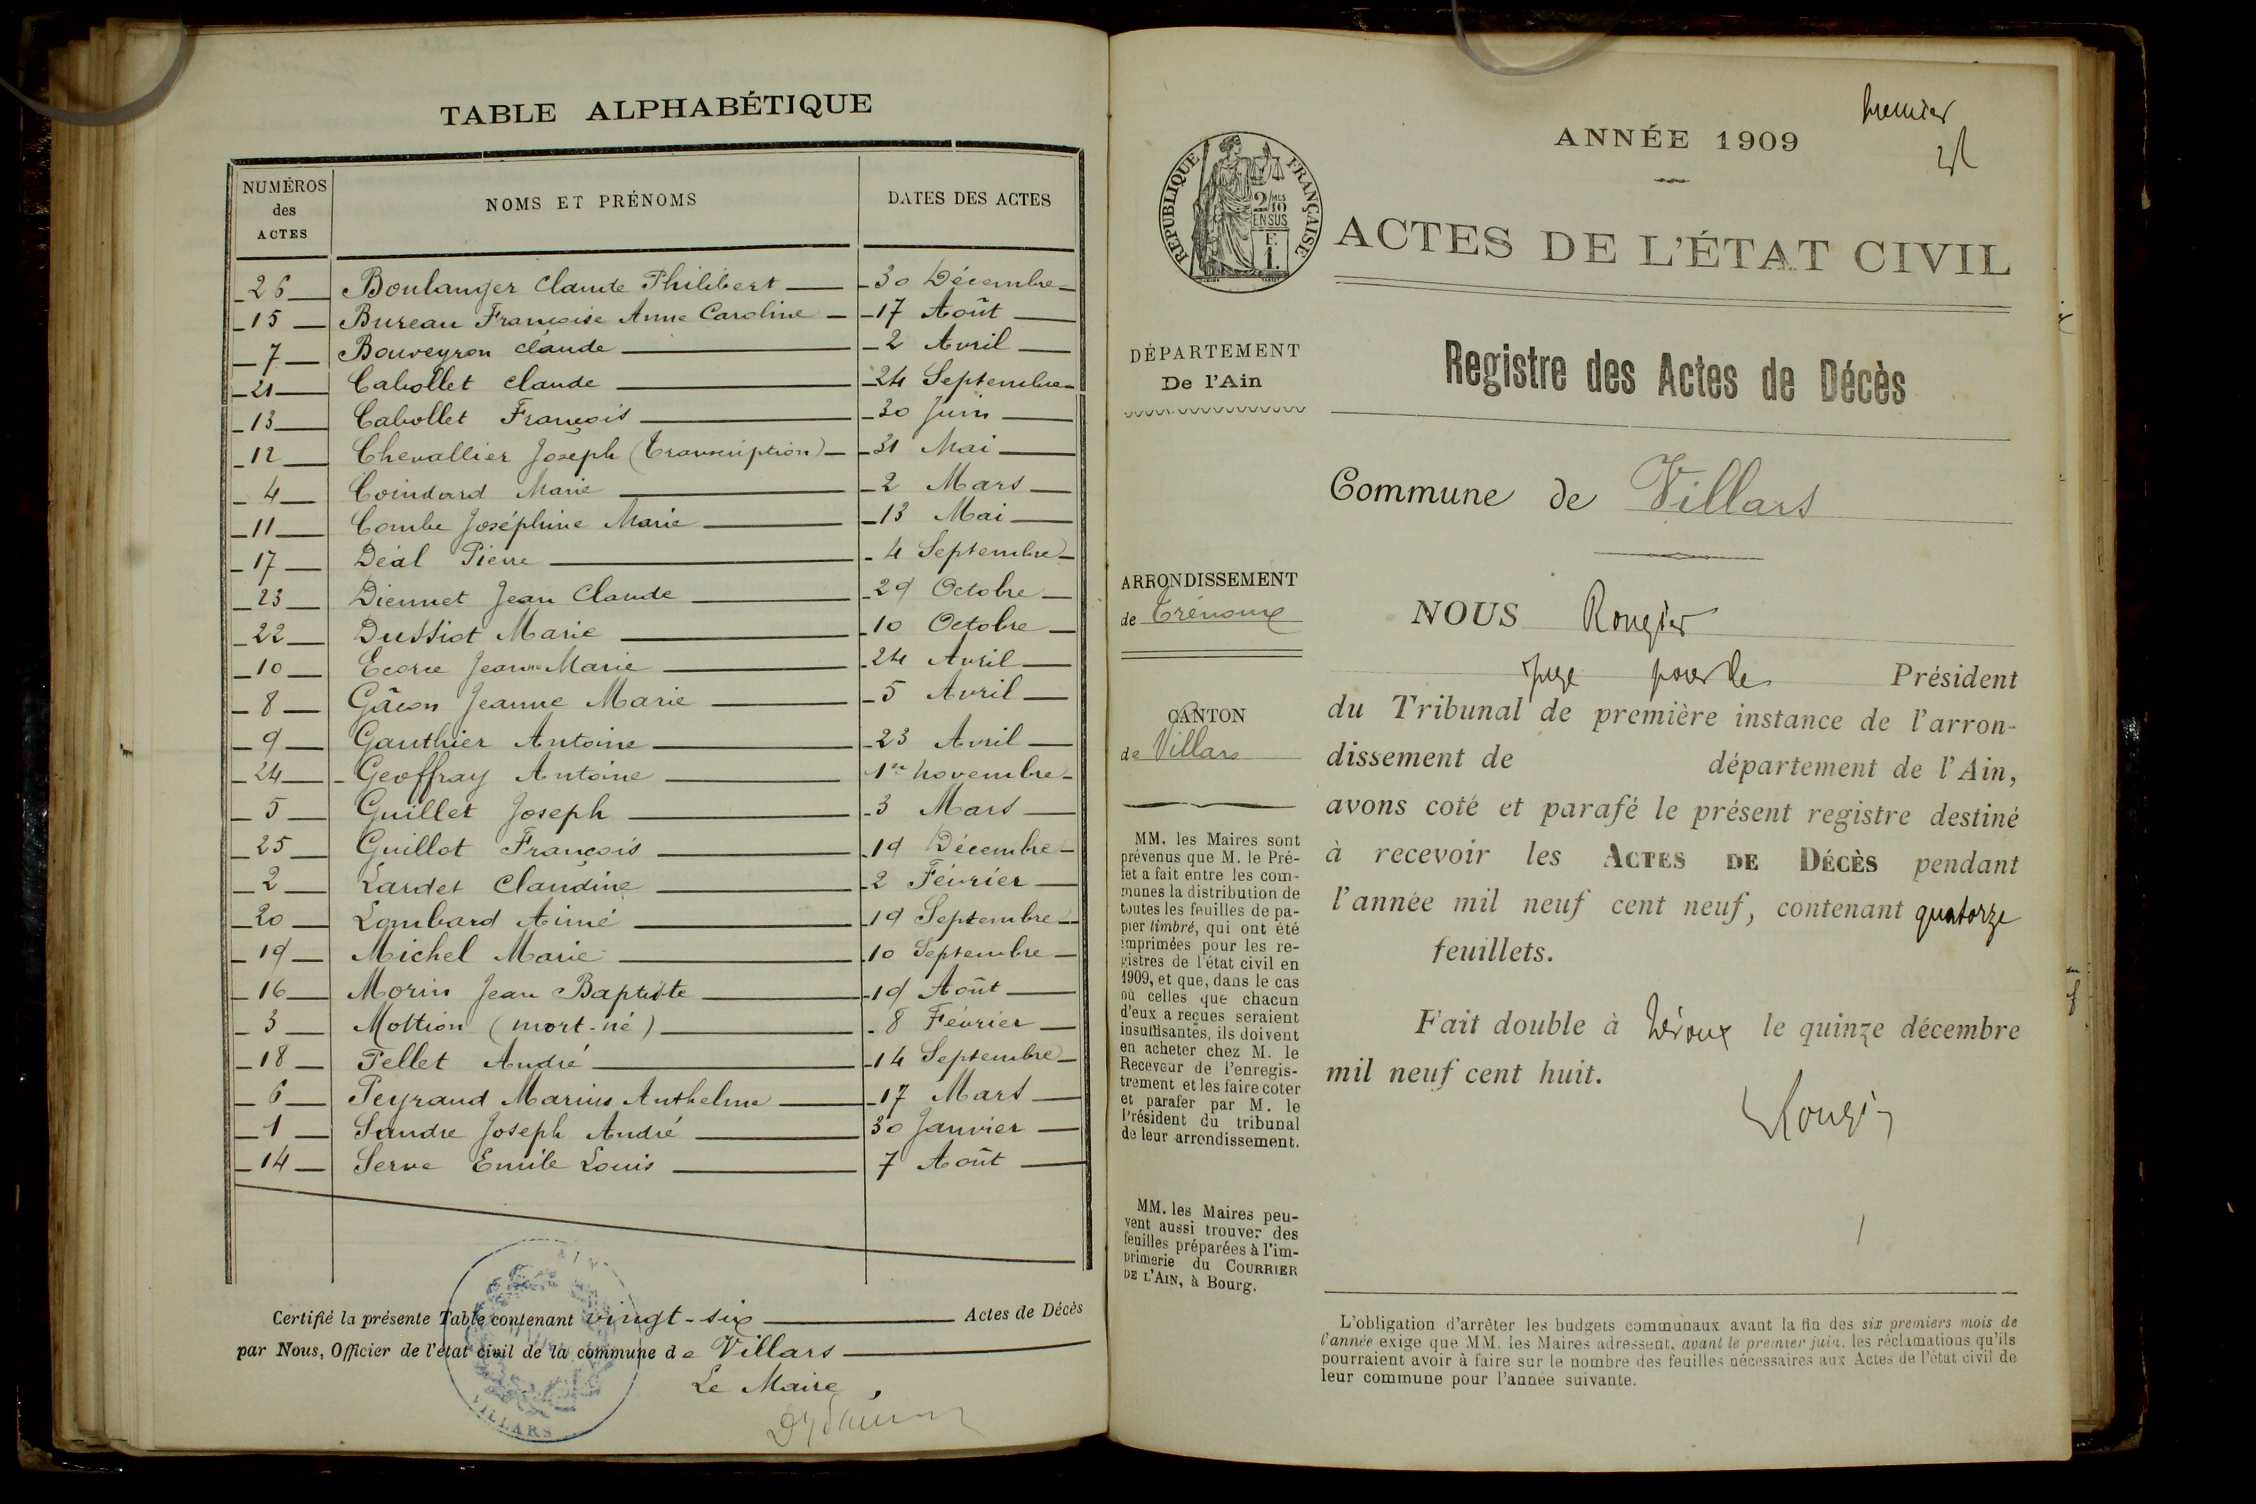 TABLE ALPHABÉTIQUE
NUMÉROS des ACTES NOMS ET PRÉNOMS DATES DES ACTES
26 Boulanger Claude Philibert 30 Décembre
15 Bureau Françoise Anne Caroline 17 Août
7 Bouveyron Claude 2 Avril
21 Cabollet Claude 24 Septembre
13 Cabollet François 30 Juin
12 Chevallier Joseph (Transcription) 31 Mai
4 Coindard Marie 2 Mars
11 Combe Joséphine Marie 13 Mai
17 Déal Pierre 4 Septembre
23 Diennet Jean Claude 29 Octobre
22 Dussiot Marie 10 Octobre
10 Ecorce Jeanne Marie 24 Avril
8 Gâcon Jeanne Marie 5 Avril
9 Gauthier Antoine 23 Avril
24 Geoffray Antoine 1er Novembre
5 Guillet Joseph 3 Mars
25 Guillot François 19 Décembre
2 Lardet Claudine 2 Février
20 Lombard Aimé 19 Septembre
19 Michel Marie 10 Septembre
16 Morin Jean Baptiste 19 Août
3 Mottion (mort-né) 8 Février
18 Pellet André 14 Septembre
6 Peyraud Marius Anthelme 17 Mars
1 Sandre Joseph André 30 Janvier
14 Serve Emile Louis 7 Août
Certifié la présente Table contenant vingt-six Actes de Décès
par Nous, Officier de l'état civil de la commune de Villars
Le Maire,
AIN
VILLARS
premier
ANNÉE 1909
RÉPUBLIQUE FRANÇAISE
2/10 MES
EN SUS
F.
1.
ACTES DE L'ÉTAT CIVIL
DÉPARTEMENT
De l'Ain
ARRONDISSEMENT
de Trévoux
CANTON
de Villars
MM. les Maires sont
prévenus que M. le Pré-
fet a fait entre les com-
munes la distribution de
toutes les feuilles de pa-
pier timbré, qui ont été
imprimées pour les re-
gistres de l'état civil en
1909, et que, dans le cas
où celles que chacun
d'eux a reçues seraient
insuffisantes, ils doivent
en acheter chez M. le
Receveur de l'enregis-
trement et les faire coter
et parafer par M. le
Président du tribunal
de leur arrondissement.
MM. les Maires peu-
vent aussi trouver des
feuilles préparées à l'im-
primerie du COURRIER
DE L'AIN, à Bourg.
Registre des Actes de Décès
Commune de Villars
NOUS Rougier
juge pour le Président
du Tribunal de première instance de l'arron-
dissement de département de l'Ain,
avons coté et parafé le présent registre destiné
à recevoir les ACTES DE DÉCÈS pendant
l'année mil neuf cent neuf, contenant quatorze
feuillets.
Fait double à Trévoux le quinze décembre
mil neuf cent huit.
Rougier
L'obligation d'arrêter les budgets communaux avant la fin des six premiers mois de
l'année exige que MM. les Maires adressent, avant le premier juin, les réclamations qu'ils
pourraient avoir à faire sur le nombre des feuilles nécessaires aux Actes de l'état civil de
leur commune pour l'année suivante.